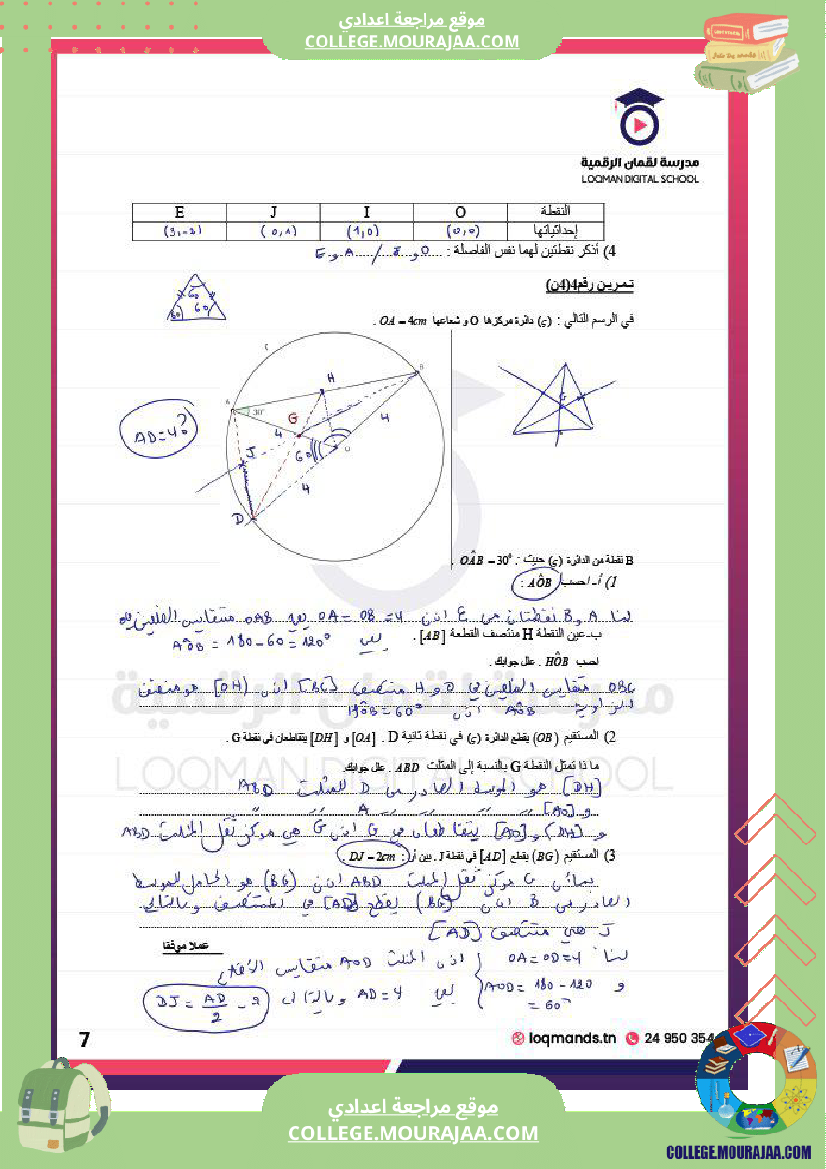 موقع مراجعة اعدادي
COLLEGE.MOURAJAA.COM
مدرسة لقمان الرقمية
LOQMAN DIGITAL SCHOOL
النقطة O I J E
إحداثياتها (0,0) (1,0) (0,1) (3,-2)
4) أذكر نقطتين لهما نفس الفاصلة :
تمرين رقم4(4ن)
60
60
في الرسم التالي : (ع) دائرة مركزها O و شعاعها OA = 4cm .
AD=4?
A
B
H
30°
G
4
4
60
J
O
4
D
G
B نقطة من الدائرة (ع) حيث : OÂB = 30° .
1) أ- احسب AÔB :
لنا A و B نقطتان من ع اذن OA = OB = 4 ومنه OAB متقايس الضلعين
ب-عين النقطة H منتصف القطعة [AB] .
يعني AÔB = 180-60 = 120°
احسب HÔB . علل جوابك.
متقايس الضلعين في O و H منتصف اذن [OH) هو منصف
الزاوية AÔB اذن HÔB = 60°
2) المستقيم (OB) يقطع الدائرة (ع) في نقطة ثانية D . [OA] و [DH] يتقاطعان في نقطة G .
ما ذا تمثل النقطة G بالنسبة إلى المثلث ABD . علل جوابك.
[DH] هو الموسط الصادر من D للمثلث ABD
و [AO] A
و [DH] و [AO] يتقاطعان في G اذن G هي مركز ثقل المثلث ABD
3) المستقيم (BG) يقطع [AD] في نقطة J . بين أن : DJ = 2cm .
بما أن G مركز ثقل المثلث ABD اذن (BG) هو الحامل للموسط
الصادر من B اذن (BG) يقطع [AD] في المنتصف وبالتالي
J هي منتصف [AD]
عملا موفقا
لنا OA=OD=4 اذن المثلث AOD متقايس الأضلاع
و AÔD = 180-120 = 60° يعني AD=4 وبالتالي DJ = AD/2 = 2
7
loqmands.tn
24 950 354
موقع مراجعة اعدادي
COLLEGE.MOURAJAA.COM
COLLEGE.MOURAJAA.COM